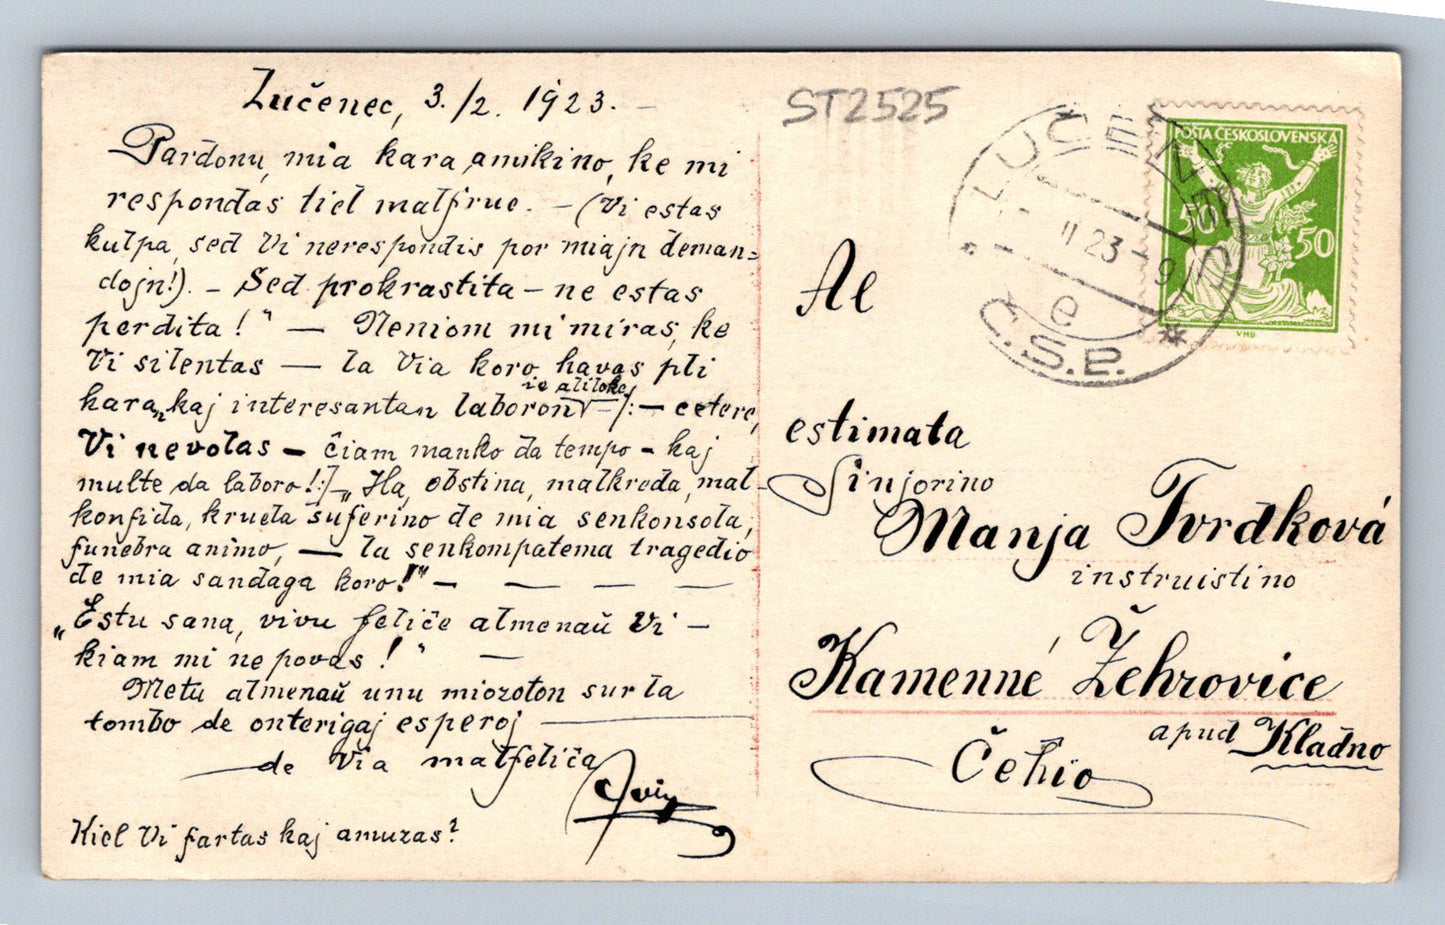 Lučenec, 3./2. 1923. —
Pardonu, mia kara amikino, ke mi
respondas tiel malfrue. — (Vi estas
kulpa, sed Vi nerespondis por miajn deman=
dojn!). — Sed prokrastita — ne estas
perdita!" — Neniom mi miras, ke
Vi silentas — la Via koro havas pli
ie aliloke
kara„ kaj interesantan laboron √—/: — cetere,
Vi nevolas — ĉiam manko da tempo — kaj
multe da laboro!:/ — „Ha, obstina, malkreda, mal-
konfida, kruela suferino de mia senkonsola,
funebra animo, — la senkompatema tragedio
de mia sandaga koro!" — — — —
„Estu sana, vivu feliĉe almenaŭ Vi —
kiam mi ne povas!" —
Metu almenaŭ unu miozoton sur la
tombo de onterigaj esperoj —
de Via malfeliĉa
Kiel Vi fartas kaj amuzas?
ST2525
LUČENEC
II 23 - 9
e
Č.S.P. *
POŠTA ČESKOSLOVENSKÁ
50 50
VHB
Al
estimata
Sinjorino
Manja Tvrdková
instruistino
Kamenné Žehrovice
apud Kladno
Ĉeĥio